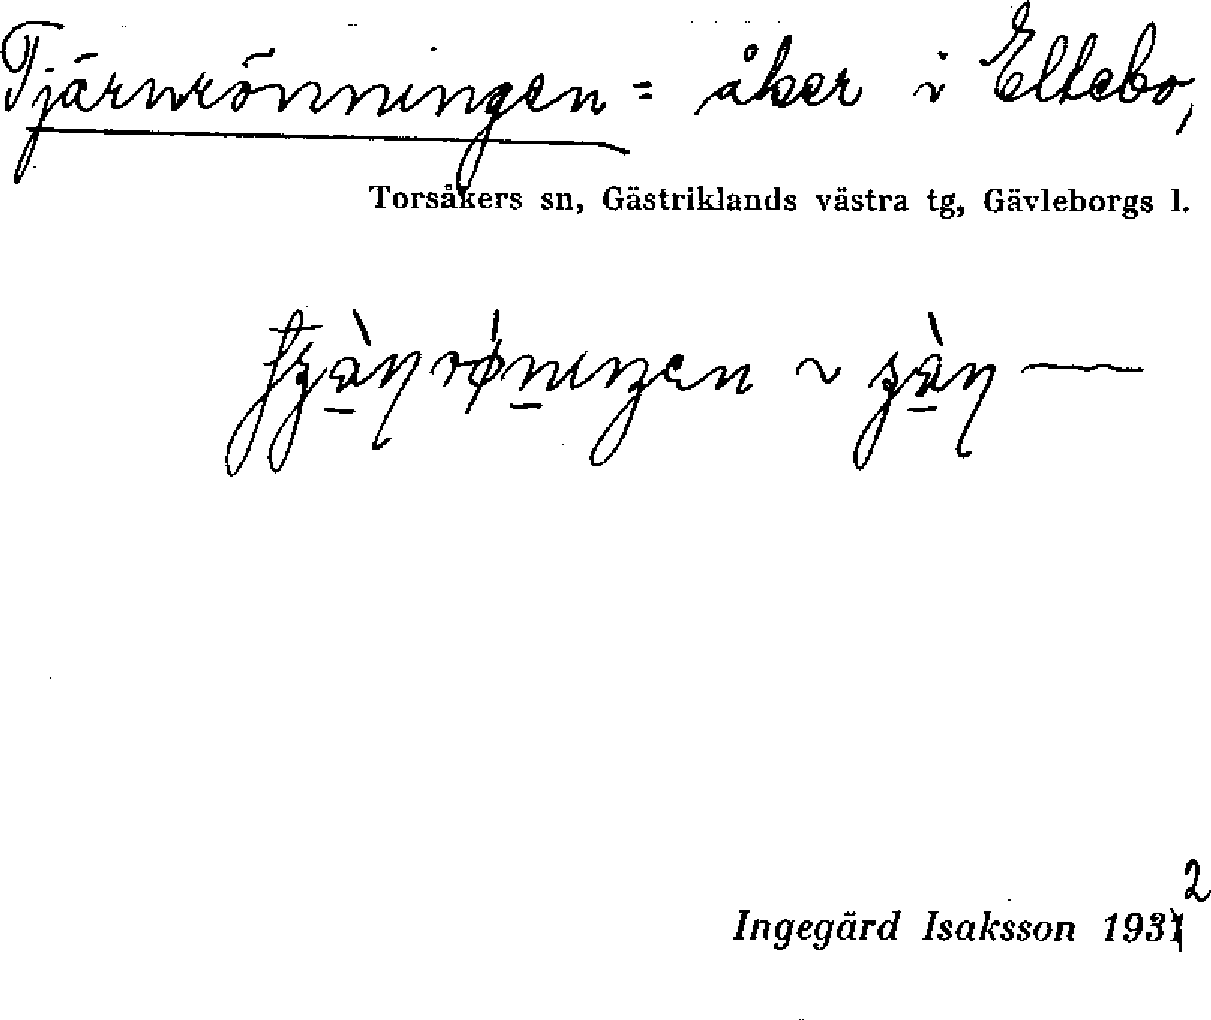 Tjärnrönningen = åker i Eltebo,
Torsåkers sn, Gästriklands västra tg, Gävleborgs l.
2
Ingegärd Isaksson 1931